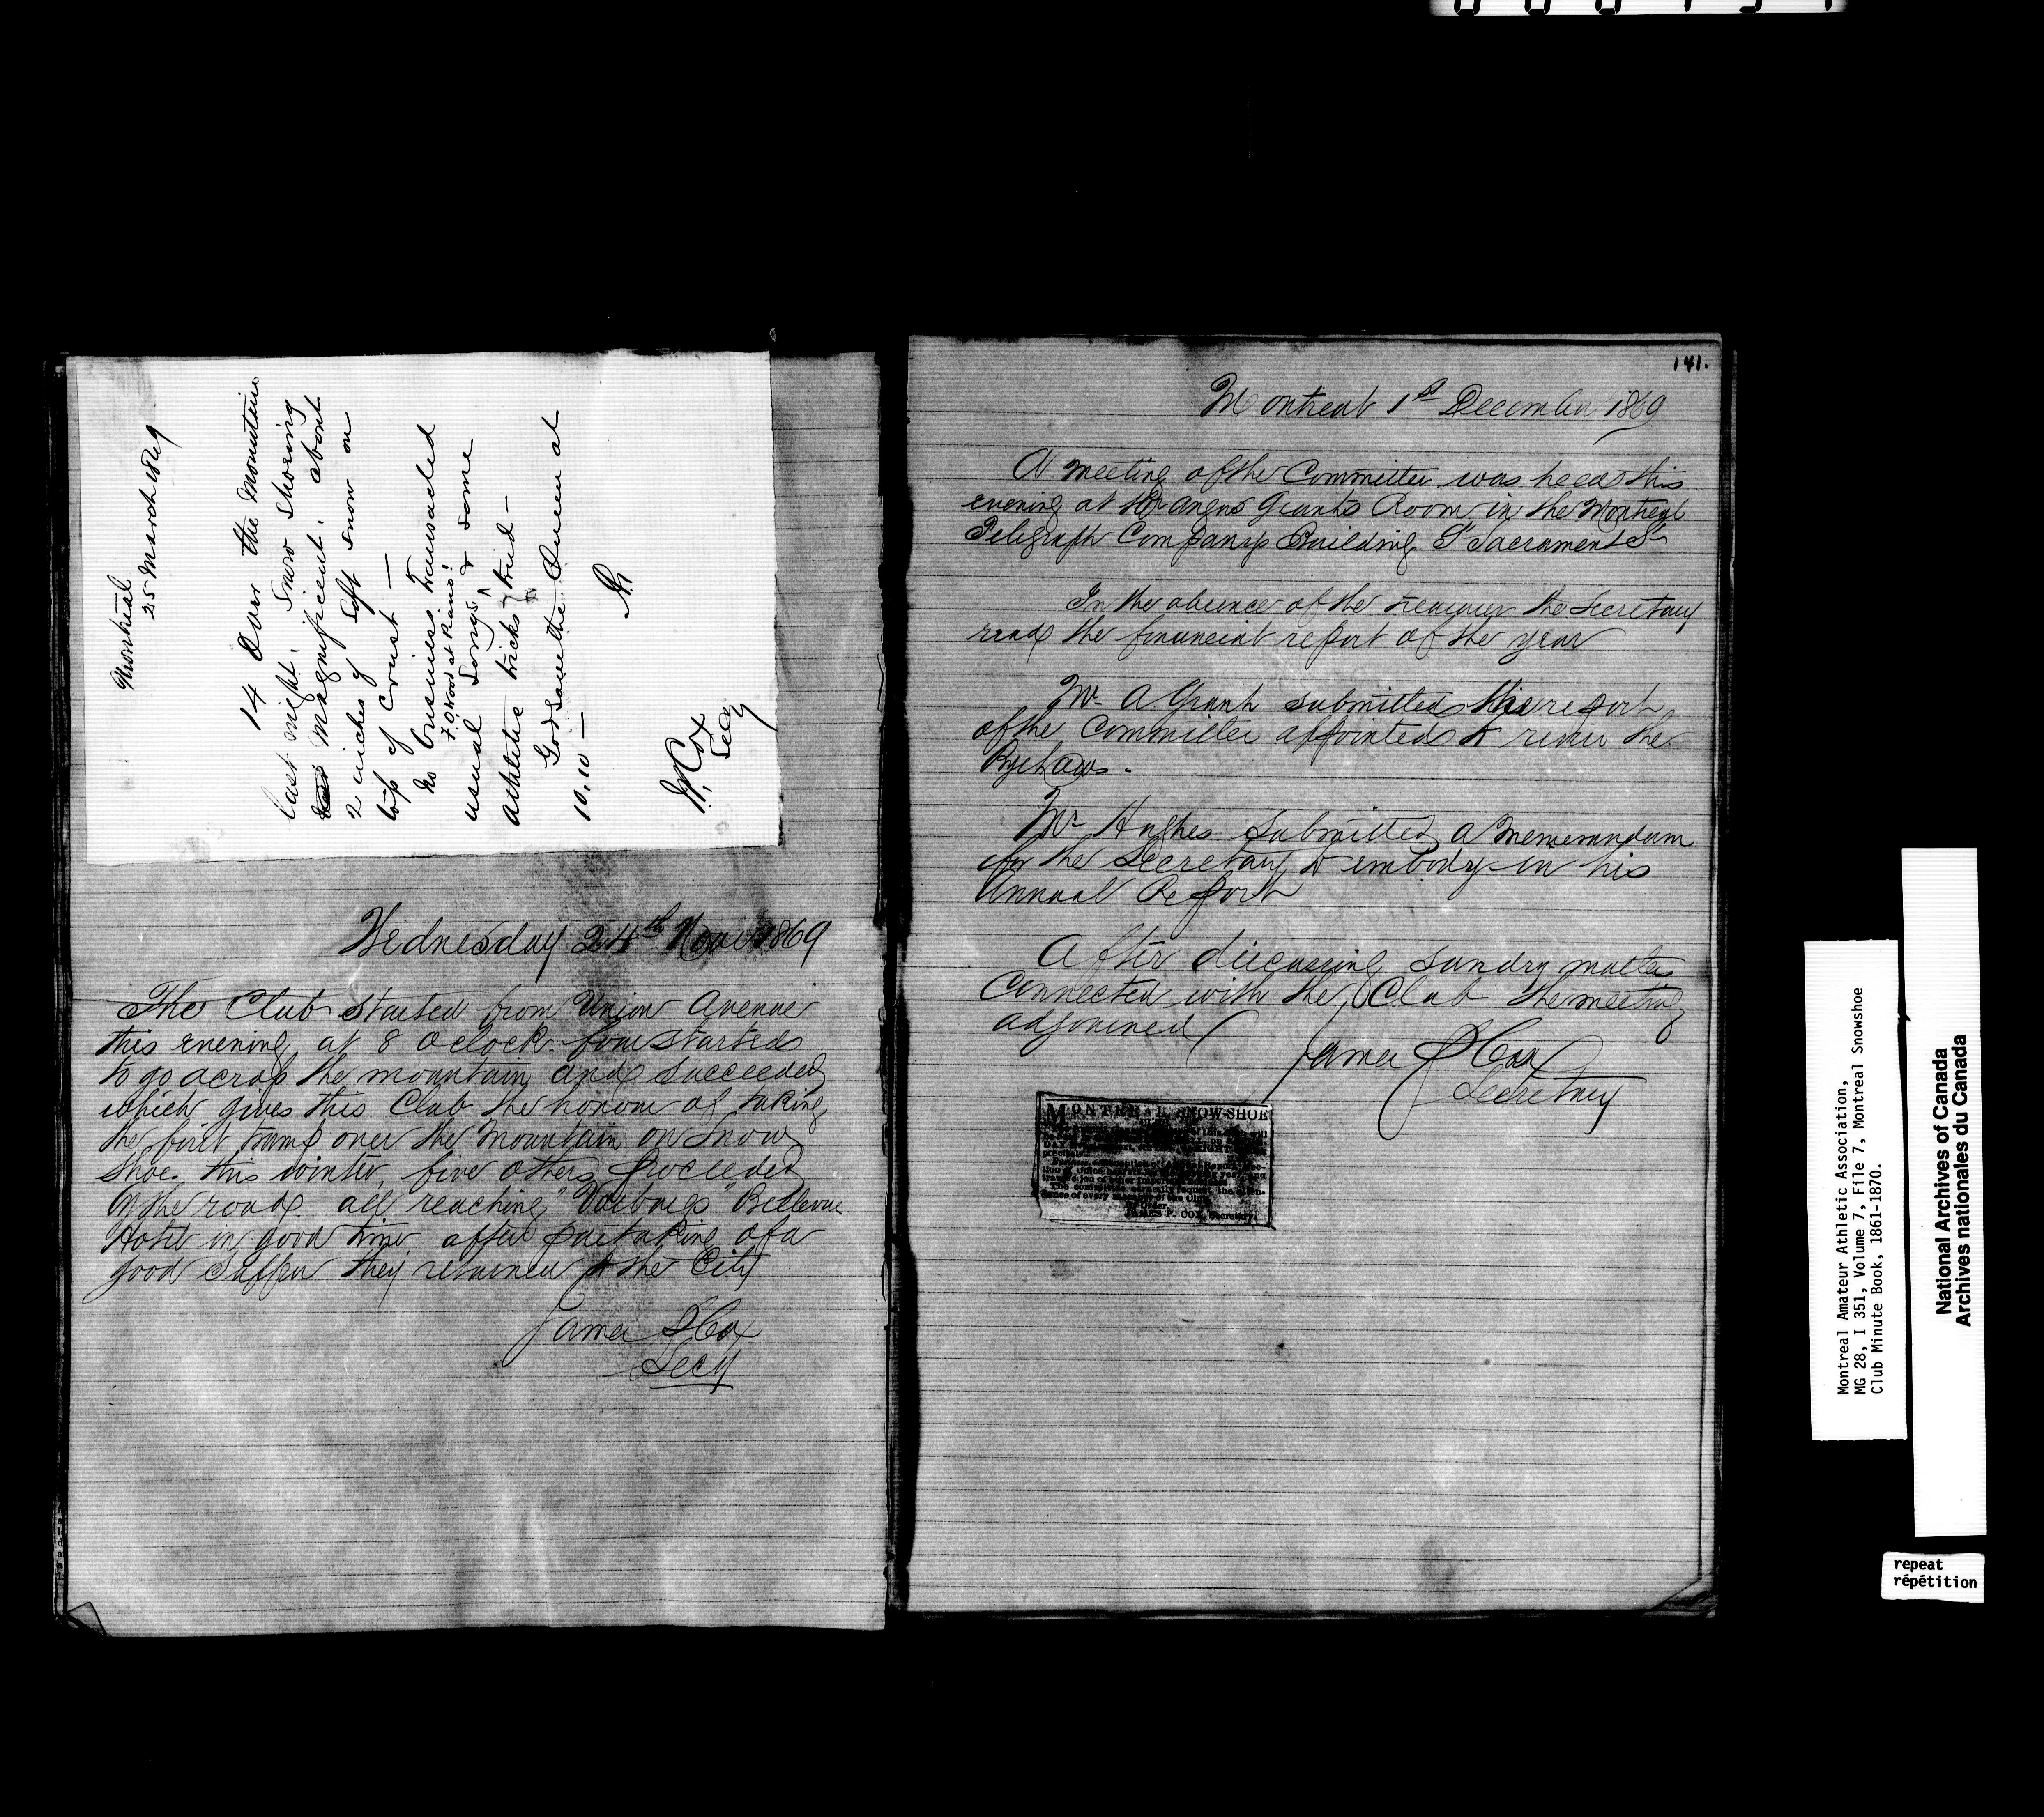 Montreal
25 March 1869
14 Over the Mountain
last night. Snow Shoeing
magnificent. about
2 inches of soft snow on
top of crust —
No business transacted
F.O. Wood at Piano!
usual songs & some
athletic tricks tried —
God save the Queen at
10.10 —
Cox
Secy
Wednesday 24th Nov 1869
The Club started from Union Avenue
this evening at 8 Oclock. four started
to go across the mountain and succeeded
which gives this Club the honour of taking
the first tramp over the Mountain on Snow
shoe this winter, five others proceeded
by the road. all reaching "Bellevue
Hotel in good time after partaking of a
good supper they returned to the City
James P Cox
Secy
141.
Montreal 1st December 1869
A meeting of the Committee was held this
evening at Mr Angus Grants Room in the Montreal
Telegraph Companys Building St Sacrament St
In the absence of the Treasurer the Secretary
read the financial report of the year
Mr A Grant submitted the report
of the Committee appointed to revise the
Bye Laws.
Mr Hughes submitted a Memorandum
for the Secretary to embody in his
Annual Report
After discussing sundry matters
Connected with the Club the meeting
adjourned
James P Cox
Secretary
MONTREAL SNOW-SHOE
The committee earnestly request the atten-
dance of every member of the Club.
By Order,
JAMES P. COX, Secretary.
Montreal Amateur Athletic Association,
MG 28, I 351, Volume 7, File 7, Montreal Snowshoe
Club Minute Book, 1861-1870.
National Archives of Canada
Archives nationales du Canada
repeat
répétition